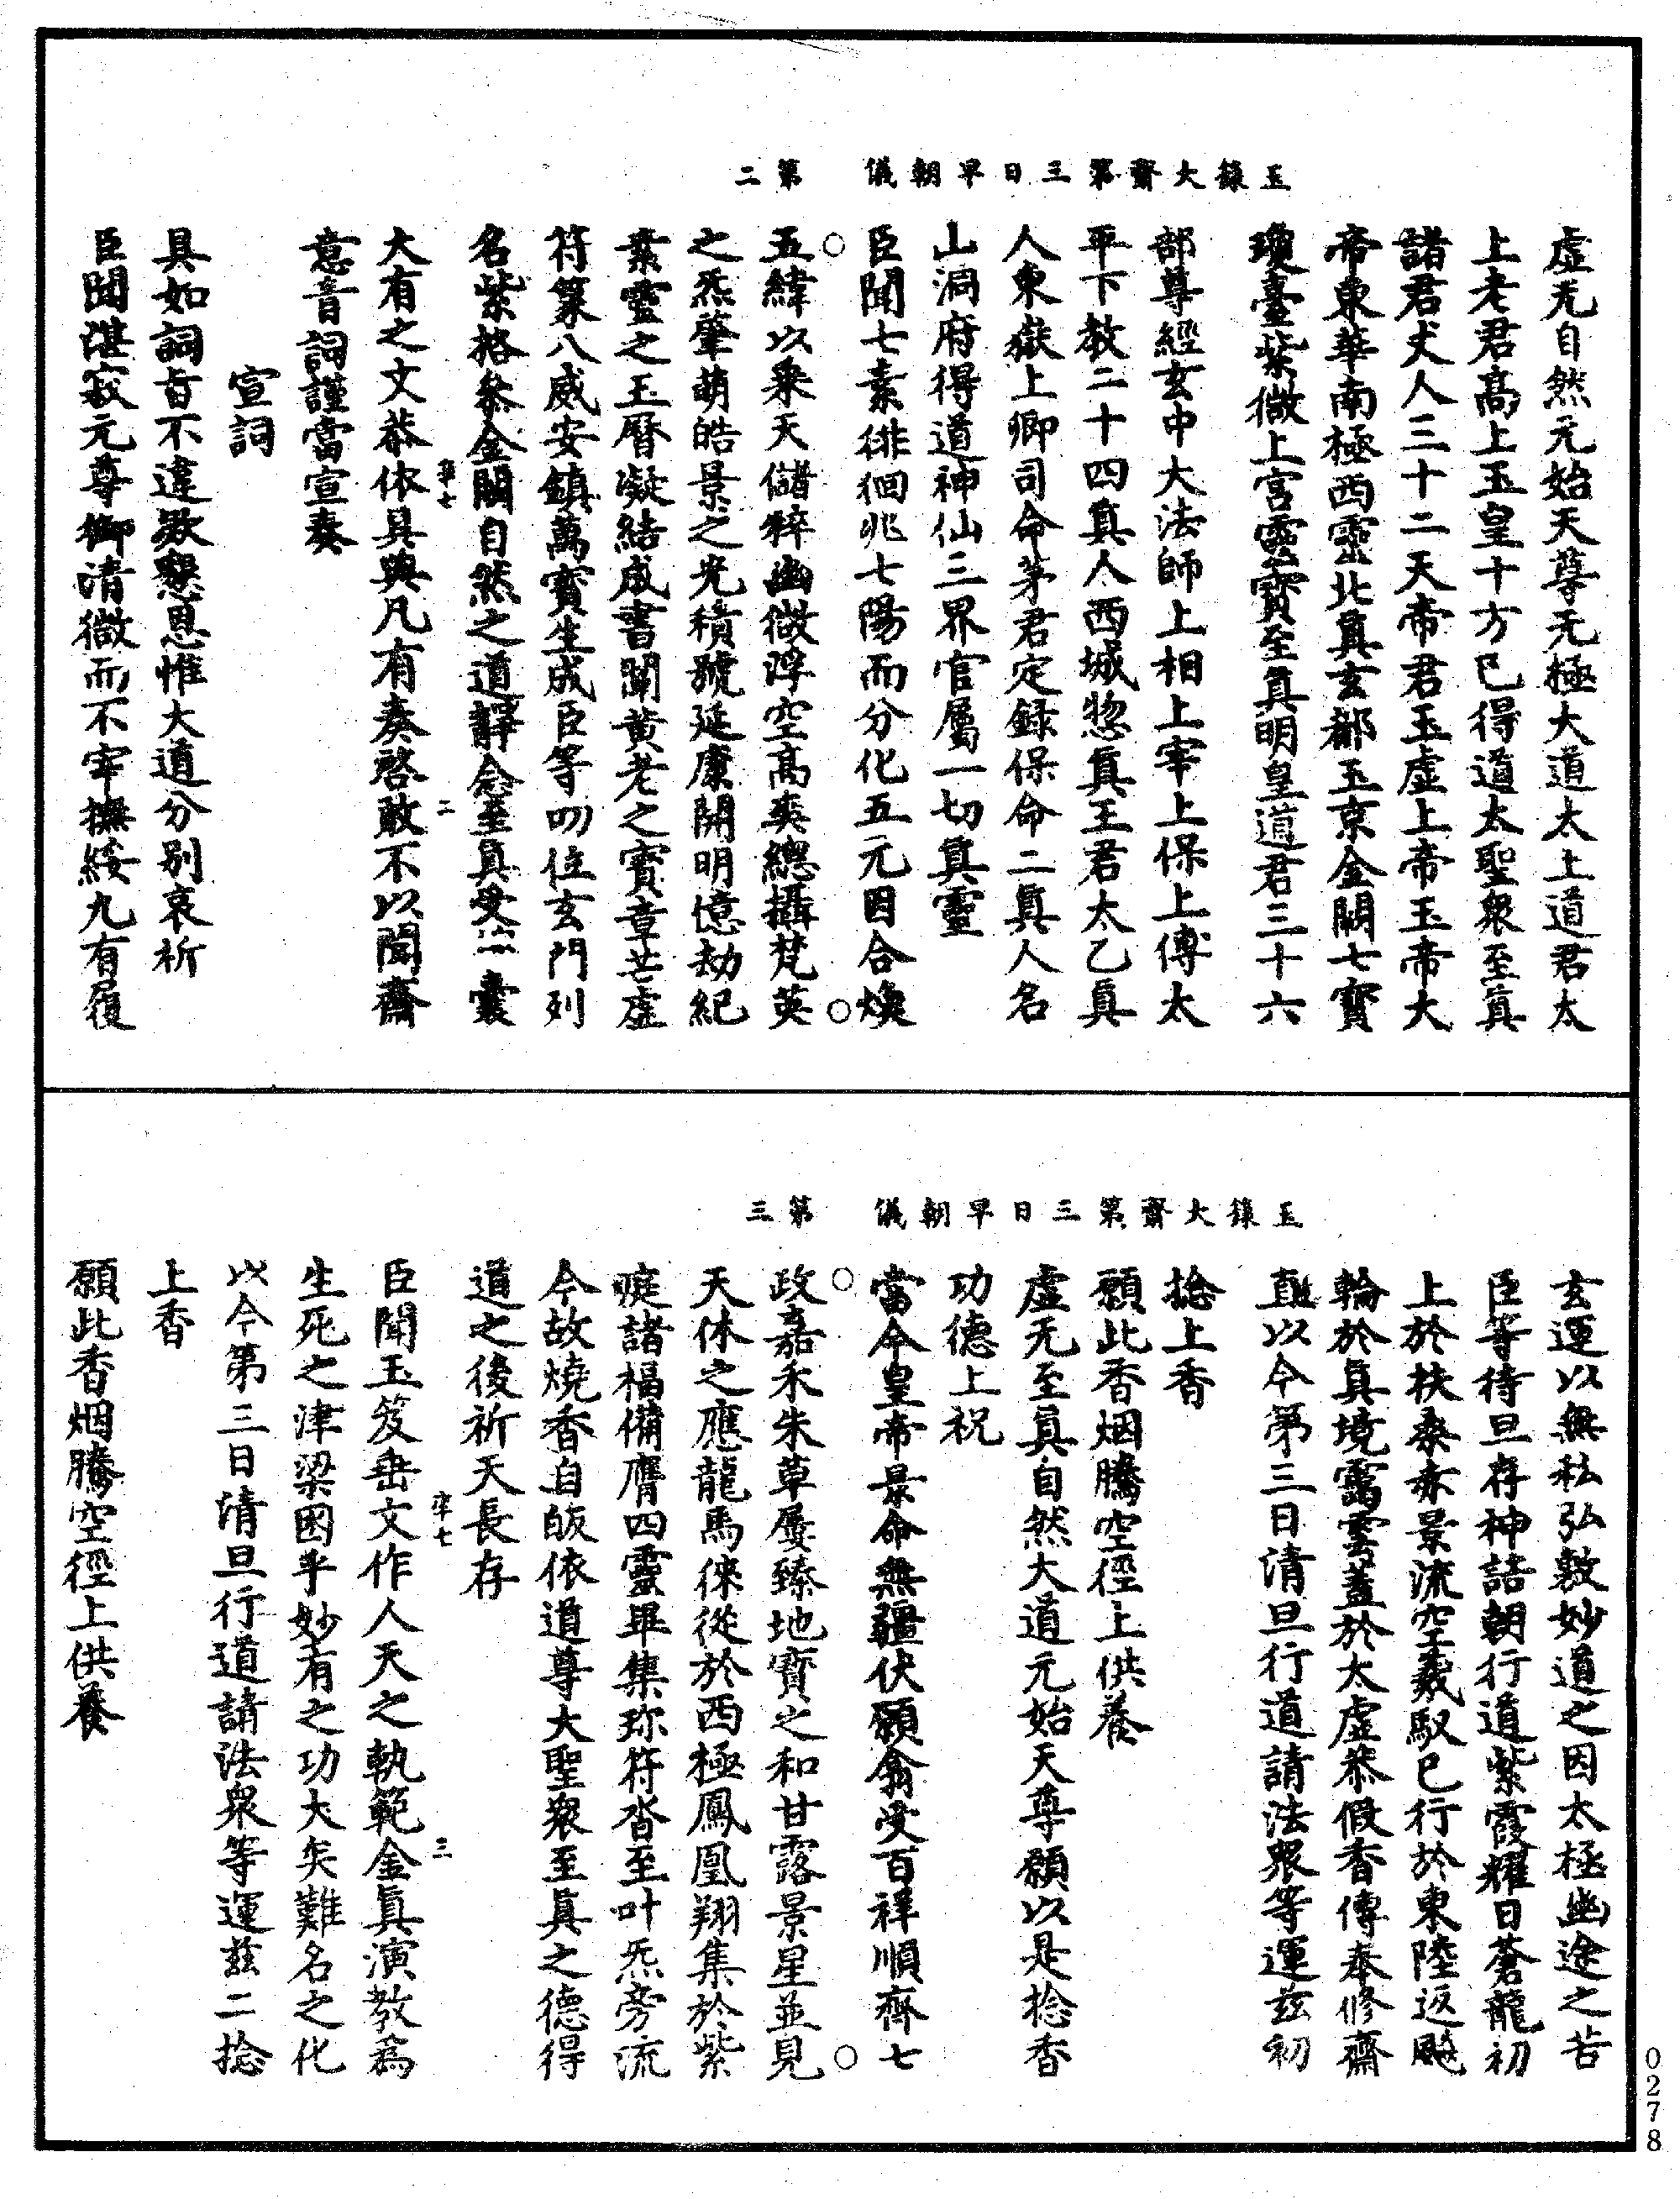 玉籙大齋第三日早朝儀　第二
虛无自然元始天尊无極大道太上道君太
上老君高上玉皇十方已得道太聖衆至真
諸君丈人三十二天帝君玉虛上帝玉帝大
帝東華南極西靈北真玄都玉京金闕七寳
瓊臺紫微上宫靈寳至真明皇道君三十六
部尊經玄中大法師上相上宰上保上傅太
平下教二十四真人西城揔真王君太乙真
人東嶽上卿司命茅君定録保命二真人名
山洞府得道神仙三界官屬一切真靈
臣聞七素徘徊兆七陽而分化五元因合煥
五緯以乘天儲粹幽微浮空高奭總攝梵英
之炁肇萌皓景之光積號延康開明億劫紀
素靈之玉曆凝結成書闡黄老之寳章芒虛
符篆八威安鎮萬寳生成臣等叨位玄門列
名紫格叅金闕自然之道譯念至真受 囊
大有之文恭依具典凡有奏啓敢不以聞齋
意音詞謹當宣奏
宣詞
具如詞旨不違欵懇恩惟大道分别哀祈
臣聞湛寂元尊御清微而不宰撫綏九有履
玉籙大齋第三日早朝儀　第三
玄運以無私弘敷妙道之因太極幽途之苦
臣等待旦存神詣朝行道紫霞耀日蒼龍初
上於扶桑赤景流空羲馭已行於東陸返飈
輪於真境靄雲蓋於太虛恭假香傳奉修齋
直以今第三日清旦行道請法衆等運兹初
捻上香
願此香烟騰空徑上供養
虛无至真自然大道元始天尊願以是捻香
功德上祝
當今皇帝景命無疆伏願翕受百祥順齊七
政嘉禾朱草屢臻地寳之和甘露景星並見
天休之應龍馬徠從於西極鳳凰翔集於紫
庭諸福備膺四靈畢集珎符沓至叶炁旁流
今故燒香自皈依道尊大聖衆至真之德得
道之後祈天長存
臣聞玉笈垂文作人天之軌範金真演教爲
生死之津梁囦乎妙有之功大矣難名之化
以今第三日清旦行道請法衆等運兹二捻
上香
願此香烟騰空徑上供養
0278